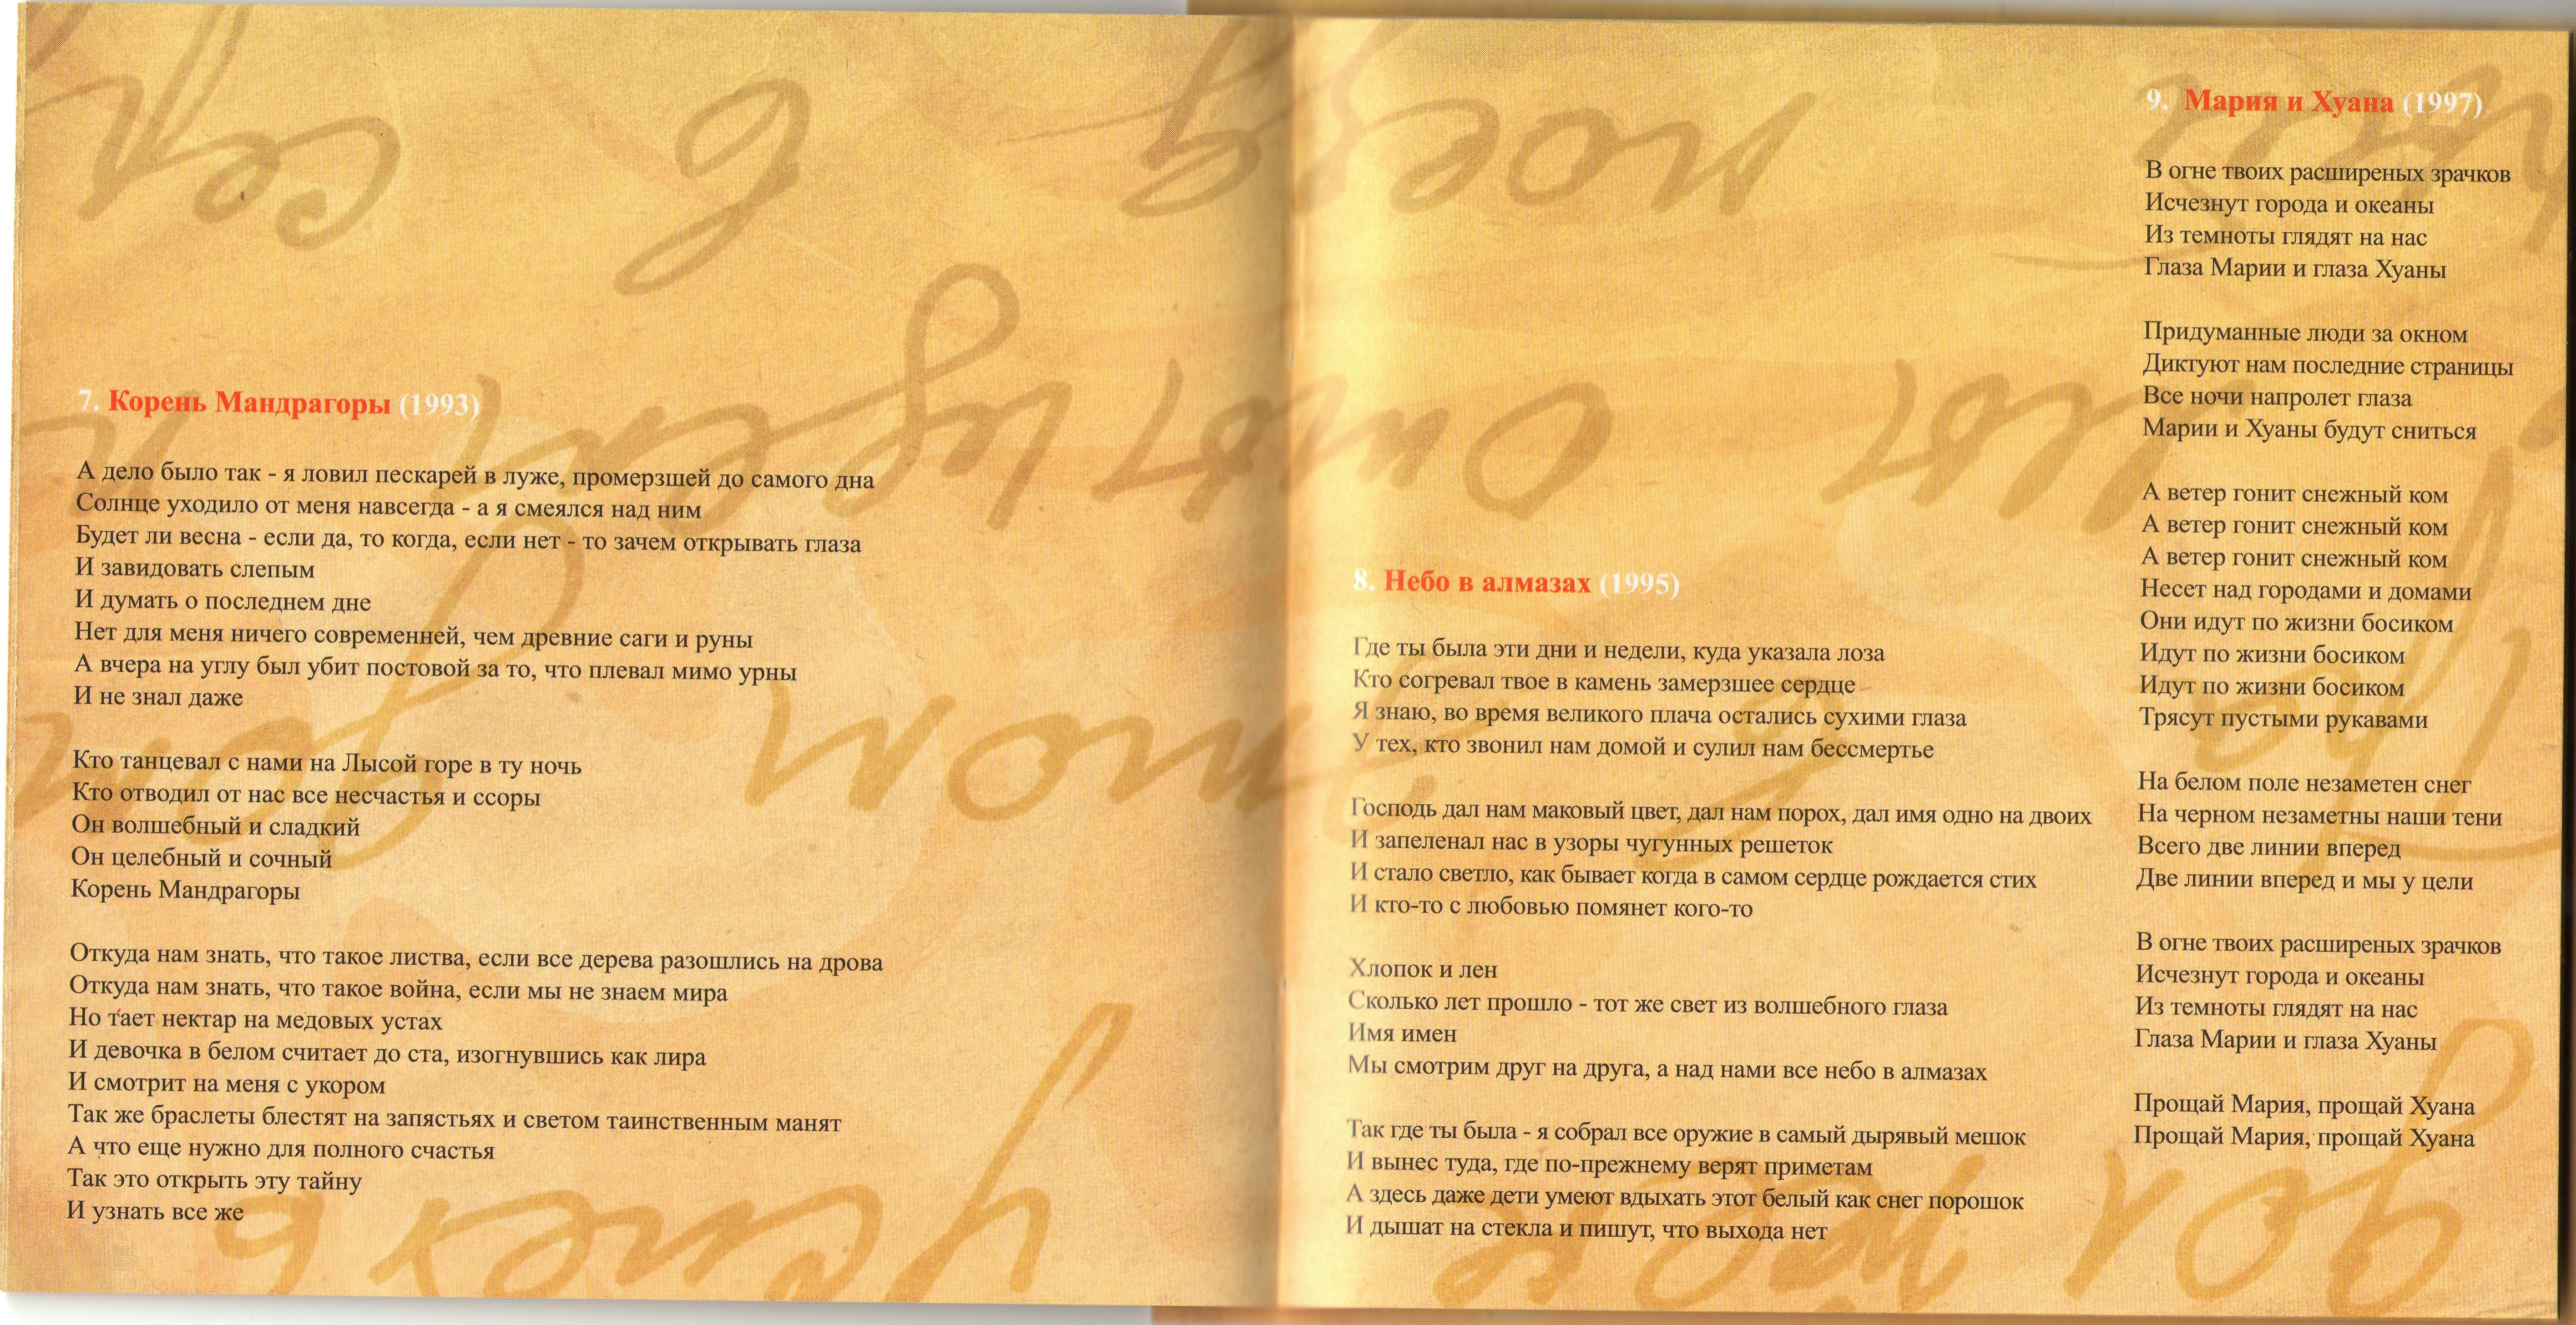 7. Корень Мандрагоры (1993)
А дело было так - я ловил пескарей в луже, промерзшей до самого дна
Солнце уходило от меня навсегда - а я смеялся над ним
Будет ли весна - если да, то когда, если нет - то зачем открывать глаза
И завидовать слепым
И думать о последнем дне
Нет для меня ничего современней, чем древние саги и руны
А вчера на углу был убит постовой за то, что плевал мимо урны
И не знал даже
Кто танцевал с нами на Лысой горе в ту ночь
Кто отводил от нас все несчастья и ссоры
Он волшебный и сладкий
Он целебный и сочный
Корень Мандрагоры
Откуда нам знать, что такое листва, если все дерева разошлись на дрова
Откуда нам знать, что такое война, если мы не знаем мира
Но тает нектар на медовых устах
И девочка в белом считает до ста, изогнувшись как лира
И смотрит на меня с укором
Так же браслеты блестят на запястьях и светом таинственным манят
А что еще нужно для полного счастья
Так это открыть эту тайну
И узнать все же
8. Небо в алмазах (1995)
Где ты была эти дни и недели, куда указала лоза
Кто согревал твое в камень замерзшее сердце
Я знаю, во время великого плача остались сухими глаза
У тех, кто звонил нам домой и сулил нам бессмертье
Господь дал нам маковый цвет, дал нам порох, дал имя одно на двоих
И запеленал нас в узоры чугунных решеток
И стало светло, как бывает когда в самом сердце рождается стих
И кто-то с любовью помянет кого-то
Хлопок и лен
Сколько лет прошло - тот же свет из волшебного глаза
Имя имен
Мы смотрим друг на друга, а над нами все небо в алмазах
Так где ты была - я собрал все оружие в самый дырявый мешок
И вынес туда, где по-прежнему верят приметам
А здесь даже дети умеют вдыхать этот белый как снег порошок
И дышат на стекла и пишут, что выхода нет
9. Мария и Хуана (1997)
В огне твоих расширеных зрачков
Исчезнут города и океаны
Из темноты глядят на нас
Глаза Марии и глаза Хуаны
Придуманные люди за окном
Диктуют нам последние страницы
Все ночи напролет глаза
Марии и Хуаны будут сниться
А ветер гонит снежный ком
А ветер гонит снежный ком
А ветер гонит снежный ком
Несет над городами и домами
Они идут по жизни босиком
Идут по жизни босиком
Идут по жизни босиком
Трясут пустыми рукавами
На белом поле незаметен снег
На черном незаметны наши тени
Всего две линии вперед
Две линии вперед и мы у цели
В огне твоих расширеных зрачков
Исчезнут города и океаны
Из темноты глядят на нас
Глаза Марии и глаза Хуаны
Прощай Мария, прощай Хуана
Прощай Мария, прощай Хуана